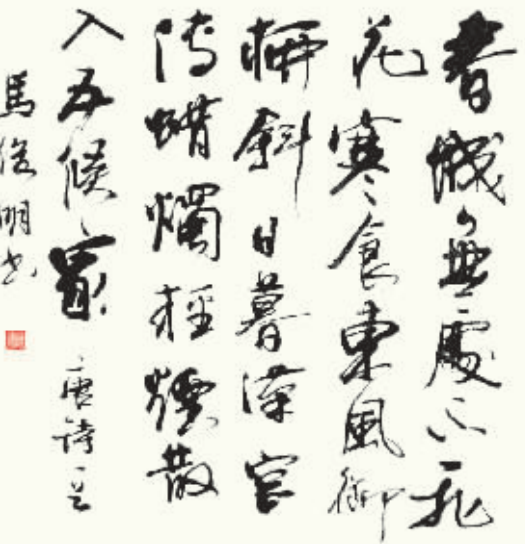 春城無處不飛
花寒食東風御
柳斜日暮漢宮
傳蜡燭輕煙散
入五侯家 唐詩一首
馬 明书